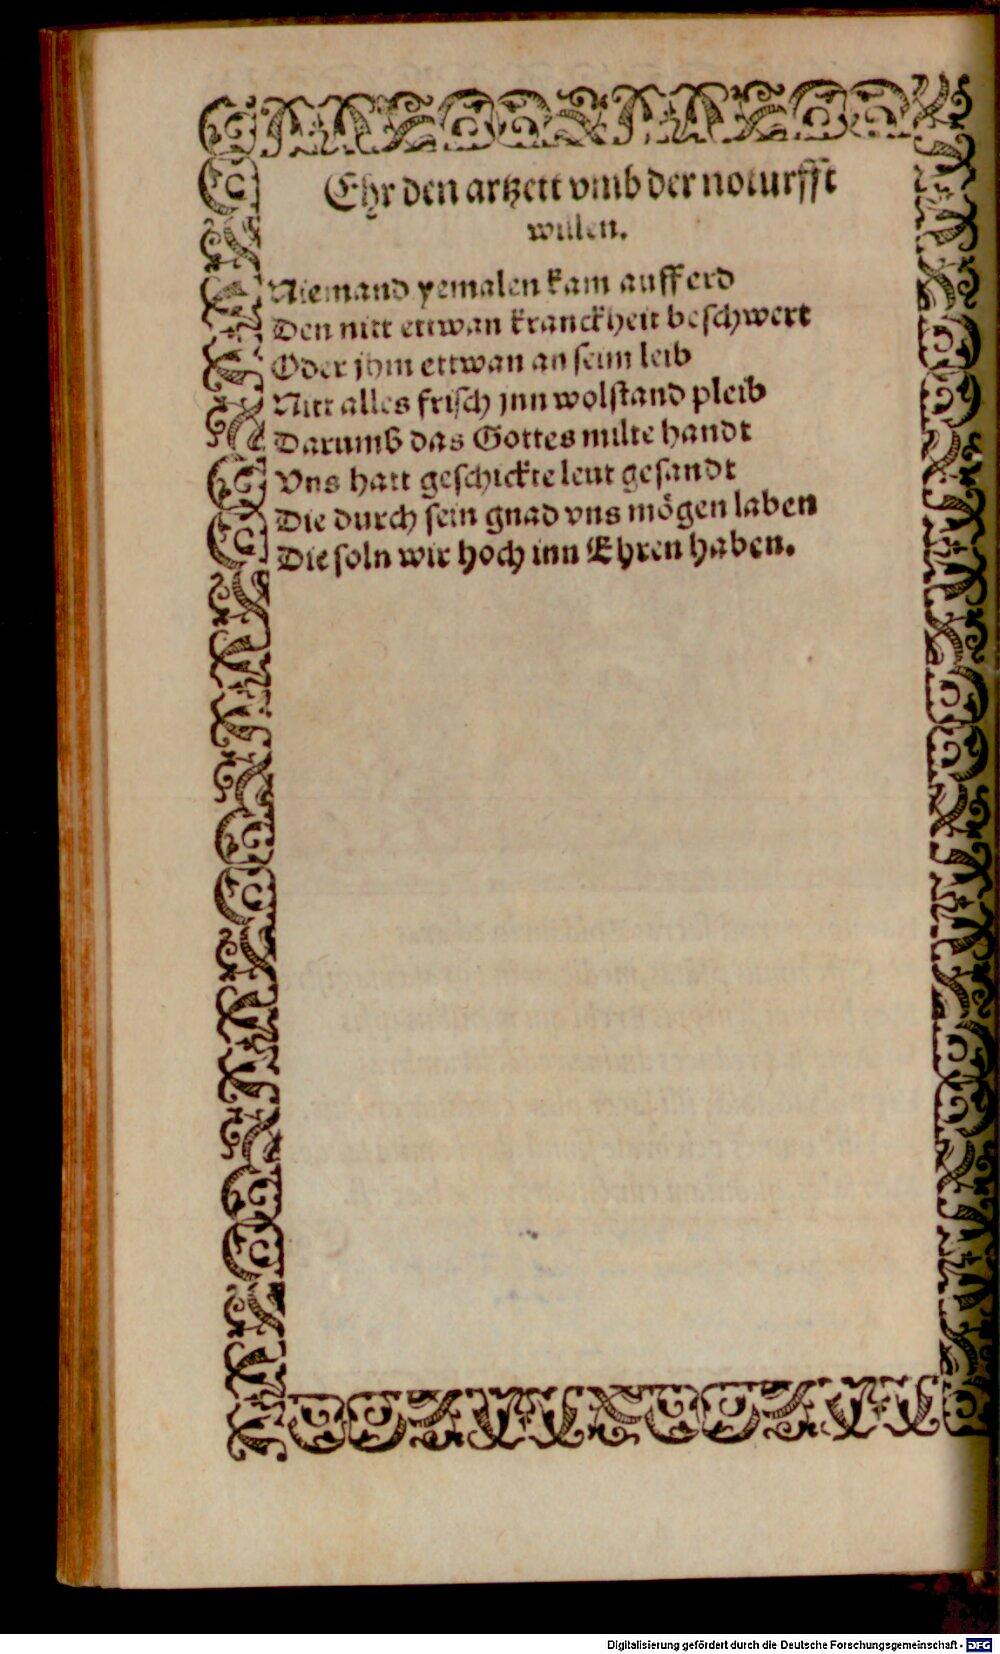 Ehr den artzett vmb der noturfft
willen.
Niemand yemalen kam auff erd
Den nitt ettwan kranckheit beschwert
Oder jhm ettwan an seim leib
Nitt alles frisch jnn wolstand pleib
Darumb das Gottes milte handt
Vns hatt geschickte leut gesandt
Die durch sein gnad vns mögen laben
Die soln wir hoch inn Ehren haben.
Digitalisierung gefördert durch die Deutsche Forschungsgemeinschaft - DFG